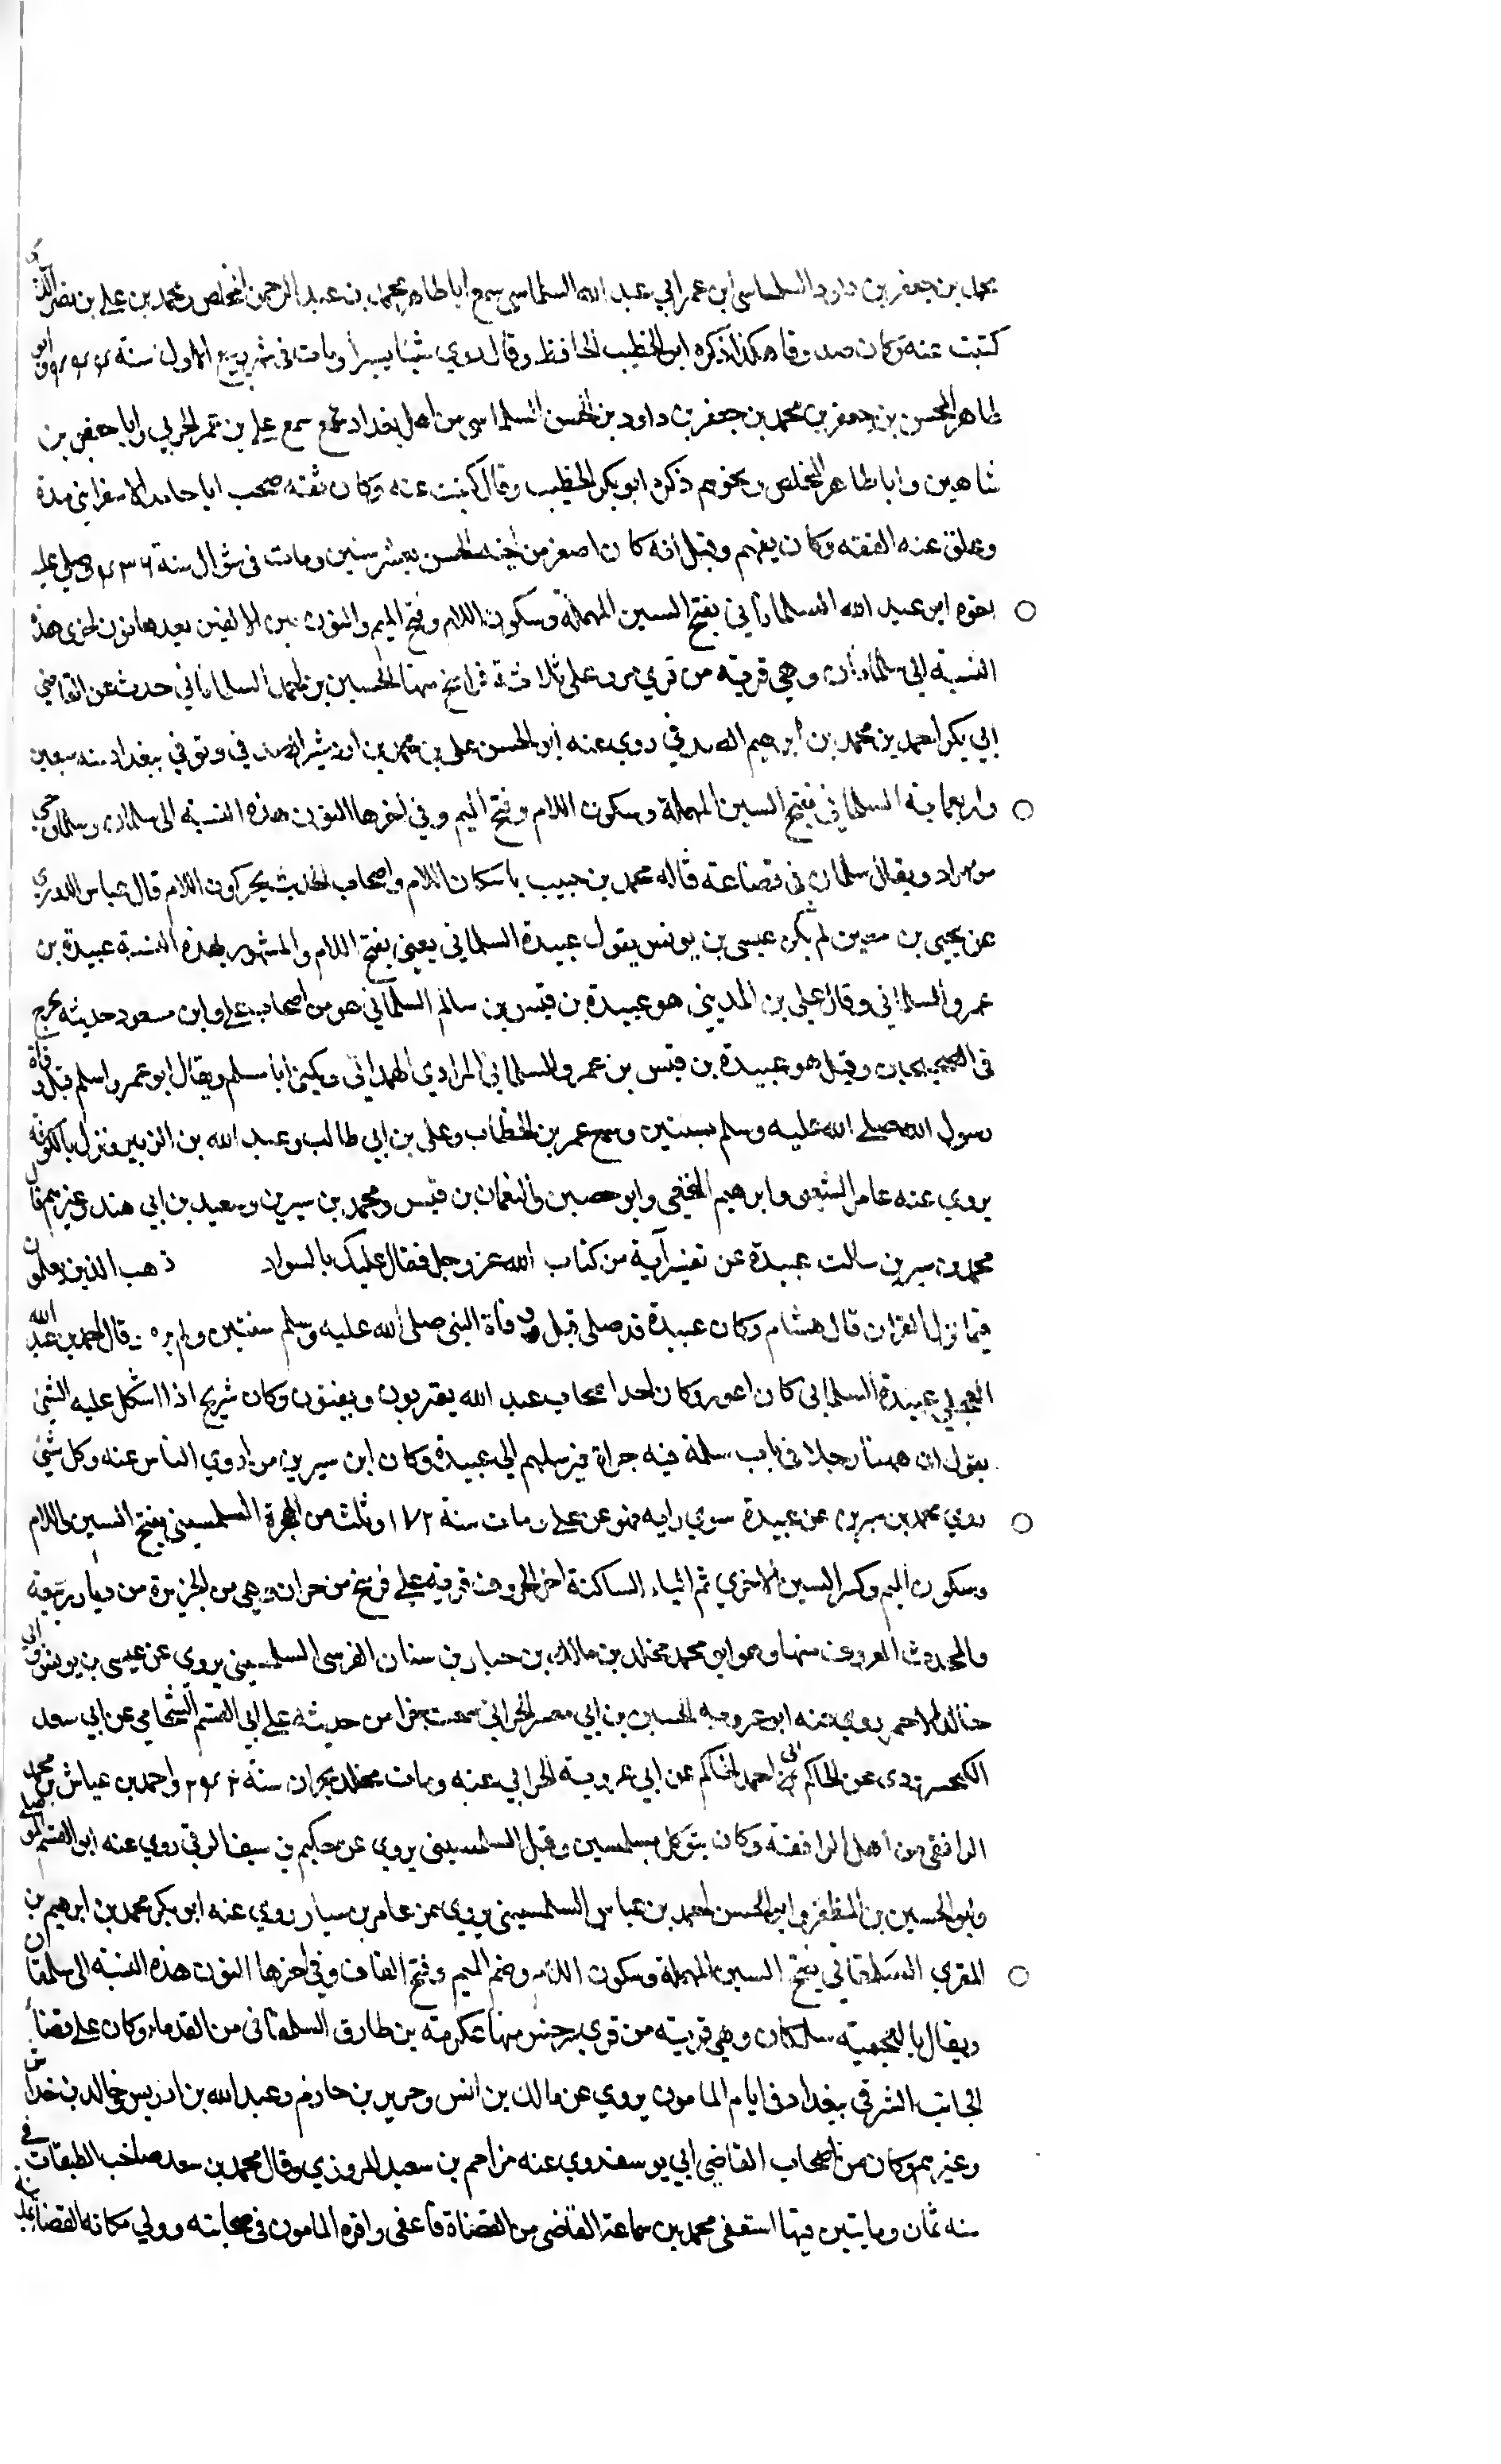 محمد بن جعفر بن داود السلماسي ابن عمر ابي عبد الله السلماسي سمع اباطاهر محمد بن عبد الرحمن المخلص ومحمد بن علي بن نضر
كتبت عنه وكان صدوقا هكذا ذكره ابو الخطيب الحافظ وقال روي شيئا يسيرا ومات في شهر ربيع الاول سنة
طاهر المحسن بن جعفر بن محمد بن جعفر بن داود بن الحسن السلماسي من اهل بغداد سمع علي بن عمر الحربي وابا حفص بن
شاهين واباطاهر المخلص ونحوهم ذكره ابو بكر الخطيب وقال كتبت عنه وكان ثقة صحب ابا حامد الاسفرايني مدة
وعلق عنه الفقه وكان يفهم وقيل انه كان اصغر من اخيه الحسن بعشر سنين ومات في شوال سنة ۴۳۶ وصلي عليه
اخوه ابو عبد الله السلماناني بفتح السين المهملة وسكون اللام وفتح الميم والنون بين الالفين بعدها نون اخري هذه
النسبة الي سلمانان وهي قرية من قري مرو علي ثلاثة فراسخ منها الحسين بن محمد السلماناني حدث عن القاضي
ابي بكر احمد بن محمد بن ابرهيم الصدفي روي عنه ابو الحسن علي بن محمد بن اردشير الصدفي وتوفي ببغداد سنه سبعين
واربعماية السلماني بفتح السين المهملة وسكون اللام وفتح الميم وفي اخرها النون هذه النسبه الى سلمان وسلمان حي
من مراد ويقال سلمان في قضاعة قاله محمد بن حبيب باسكان اللام واصحاب الحديث يحركون اللام قال عباس الدوري
عن يحيى بن معين لم يكن عيسى بن يونس يقول عبيدة السلماني يعني بفتح اللام والمشهور بهذه النسبة عبيدة بن
عمرو السلماني وقال علي بن المديني هو عبيدة بن قيس بن سالم السلماني هو من اصحاب علي وابن مسعود حديثه مخرج
في الصحيحان وقيل هو عبيدة بن قيس بن عمرو السلماني المرادي الهمداني ويكنى ابا مسلم ويقال ابو عمرو اسلم قبل وفاة
رسول الله صلي الله عليه وسلم بسنتين وسمع عمر بن الخطاب وعلي بن ابي طالب وعبد الله بن الزبير ونزل بالكوفة
يروي عنه عامر الشعبي وابرهيم النخعي وابو حصين والنعمان بن قيس ومحمد بن سيرين وسعيد بن ابي هند وغيرهم قال
محمد بن سيرين سالت عبيدة عن تفسير آية من كتاب الله عز وجل فقال عليك بالسواد ذهب الذين يعلمون
فيما نزل القران قال هشام وكان عبيدة قد صلى قبل وفاة النبي صلى الله عليه وسلم سنتين ولم يره . قال احمد بن عبد الله
العجلي عبيدة السلماني كان اعور وكان احد اصحاب عبد الله يقرءون ويفتون وكان شريح اذا اشكل عليه الشيئ
يقول ان ههنا رجلا في باب سلمة فيه جراة فيرسلهم الي عبيدة وكان ابن سيرين من اروي الناس عنه وكل شيئ
روي محمد بن سيرين عن عبيدة سوي رايه فهو عن علي ومات سنة ۷۲ وثلث من الهجرة السلمسيني بفتح السين واللام
وسكون الميم وكسر السين الاخري ثم الياء الساكنة اخر الحروف قرية علي فرسخ من حران وهي من الجزيرة من ديار ربيعة
والمحدث المعروف منها وهو ابو محمد مخلد بن مالك بن سنان القرسي السلمسيني يروي عن عيسى بن يونس وابي
خالد الاحمر روي عنه ابو عروبه الحسين بن ابي معشر الحراني سمعت جزا من حديثه علي ابي القسم الشحامي عن ابي سعد
الكنجروذي عن الحاكم ابي احمد الحاكم عن ابي عروبة الحراني عنه ومات مخلد بحران سنة ۲۴۲ واحمد بن عياش بن محمد
الرافقي من اهل الرافقة وكان يتوكل بسلمسين وقيل السلمسيني يروي عن حكيم بن سيف الرقي روي عنه ابو القسم الموصلي
وابو الحسين بن المظفر وابو الحسن احمد بن عباس السلمسيني يروي عن عامر بن سيار روي عنه ابو بكر محمد بن ابرهيم بن
المقري السلمقاني بفتح السين المهملة وسكون اللام وضم الميم وفتح القاف وفي اخرها النون هذه النسبه الى سلمقان
ويقال بالعجمية سلمكان وهي قرية من قري سرخس منها عكرمة بن طارق السلمقاني من القدماء وكان علي قضاء
الجانب الشرقي ببغداد في ايام المامون يروي عن مالك بن انس وجرير بن حازم وعبد الله بن ادريس وخالد بن خداش
وغيرهم وكان من اصحاب القاضي ابي يوسف روي عنه مزاحم بن سعيد المروزي وقال محمد بن سعد صاحب الطبقات في
سنه ثمان ومايتين فيها استعفى محمد بن سماعة القاضي من القضاة فاعفى واقره المامون في صحابته وولي مكانه القضا